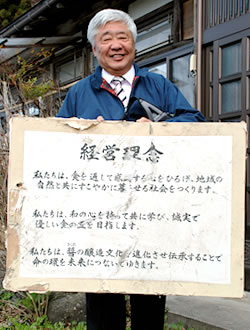 経営理念
私たちは、食を通して感謝する心をひろげ、地域の
自然と共にすこやかに暮らせる社会をつくります。
私たちは、和の心を持って共に学び、誠実で
優しい会の を目指します。
私たちは、醸造文化を進化させ伝承することで
命の環を未来につないでゆきます。